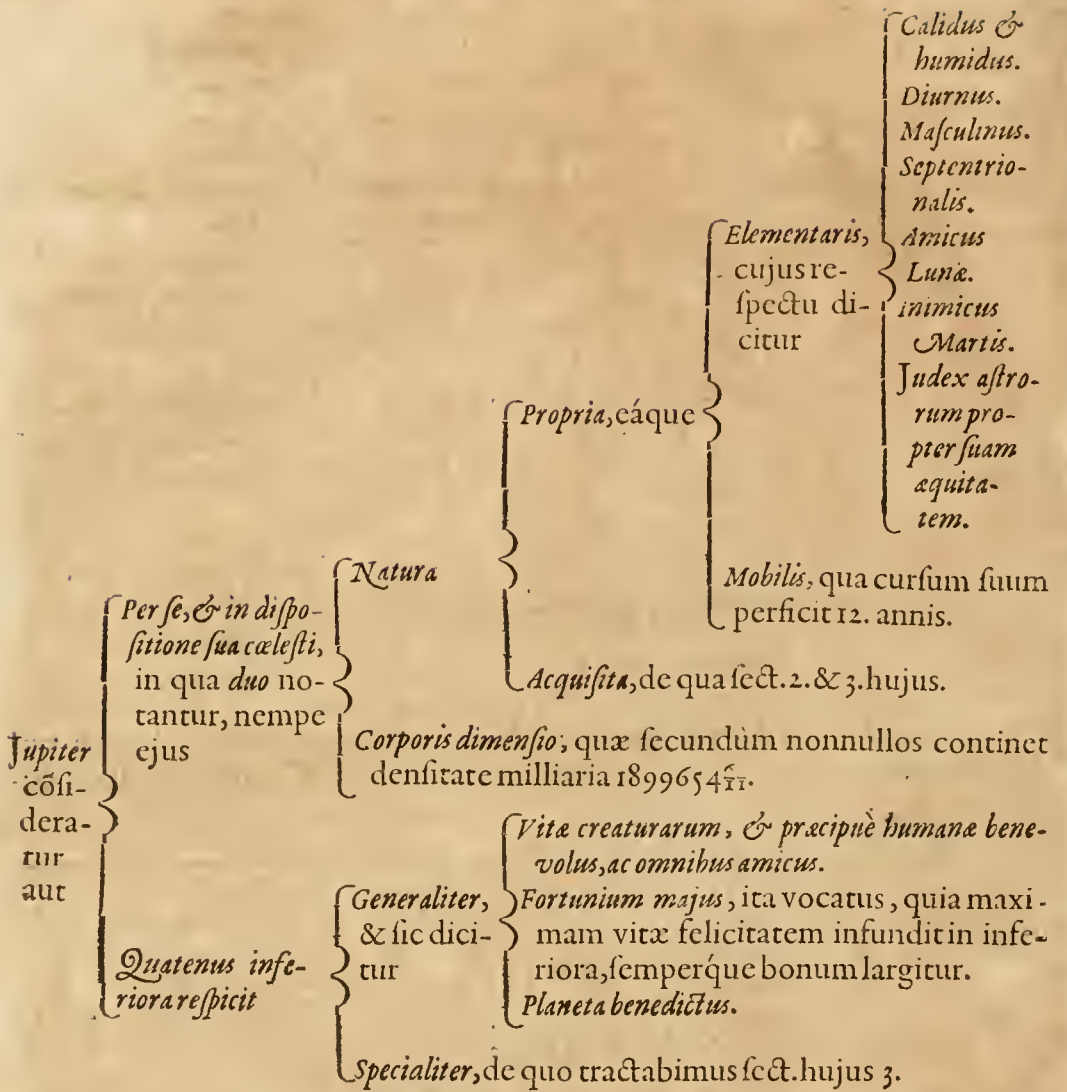 Jupiter
cõſi-
dera-
tur
aut
Per ſe, & in diſpo-
ſitione ſua cæleſti,
in qua duo no-
tantur, nempe
ejus
Natura
Propria, eáque
Elementaris,
cujus re-
ſpectu di-
citur
Calidus &
humidus.
Diurnus.
Maſculinus.
Septentrio-
nalis.
Amicus
Lunæ.
Inimicus
Martis.
Judex aſtro-
rum pro-
pter ſuam
æquita-
tem.
Mobilis, qua curſum ſuum
perficit 12. annis.
Acquiſita, de qua ſect. 2. & 3. hujus.
Corporis dimenſio, quæ ſecundùm nonnullos continet
denſitate milliaria 1899654 6/11.
Quatenus infe-
riora reſpicit
Generaliter,
& ſic dici-
tur
Vitæ creaturarum, & præcipuè humanæ bene-
volus, ac omnibus amicus.
Fortunium majus, ita vocatus, quia maxi-
mam vitæ felicitatem infundit in infe-
riora, ſemperq́ue bonum largitur.
Planeta benedictus.
Specialiter, de quo tractabimus ſect. hujus 3.